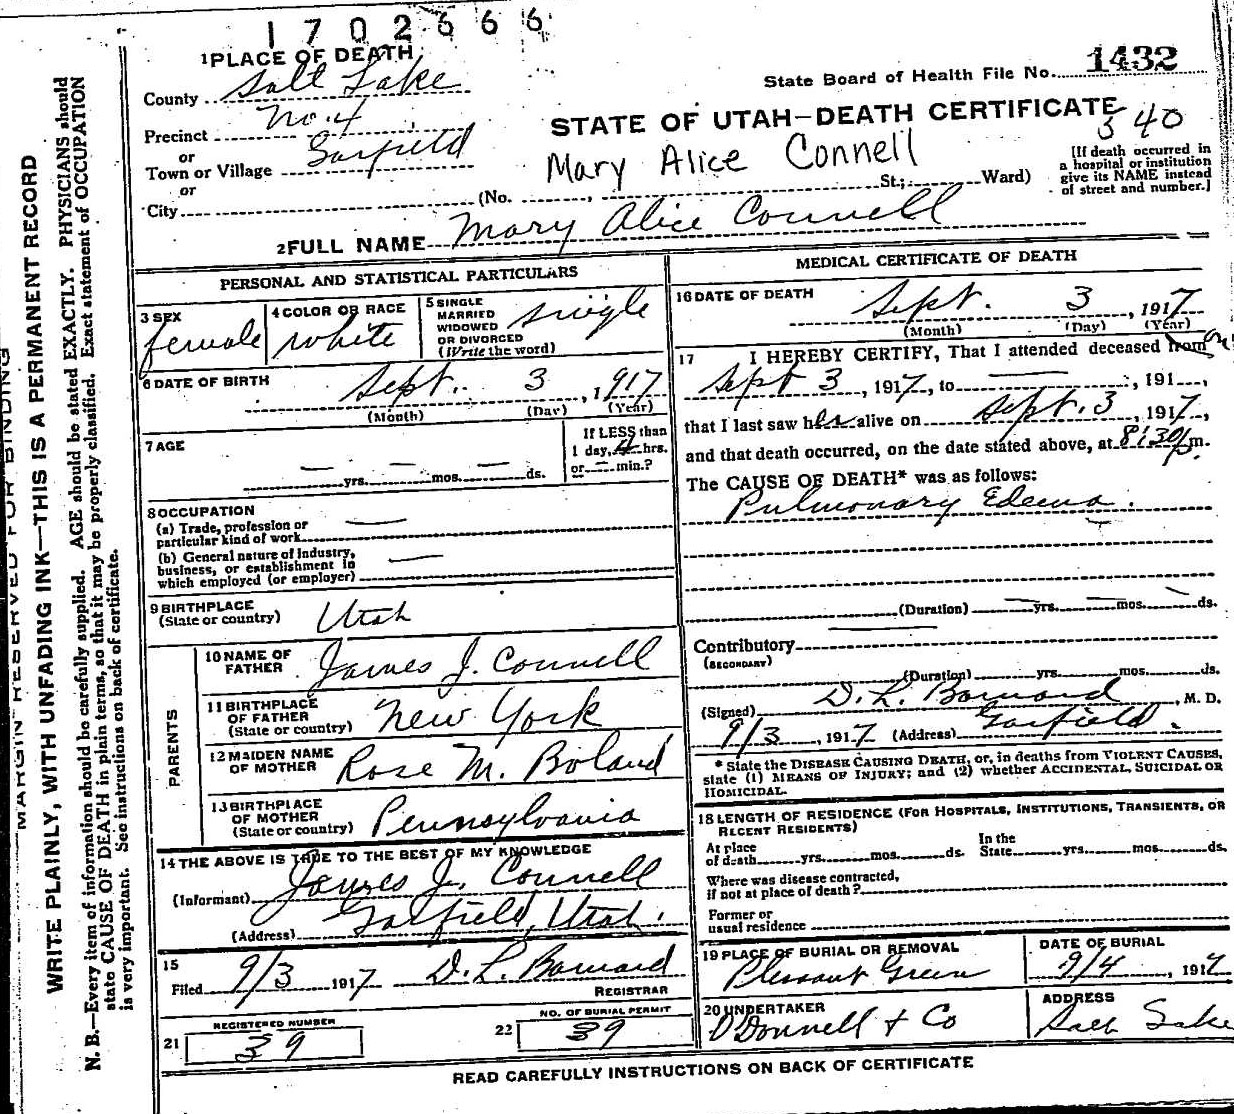 1702666
1 PLACE OF DEATH
County Salt Lake
Precinct No. 4
or
Town or Village Garfield
or
City
State Board of Health File No. 1432
STATE OF UTAH—DEATH CERTIFICATE
540
Mary Alice Connell
(No. St.; Ward)
[If death occurred in
a hospital or institution
give its NAME instead
of street and number.]
2 FULL NAME Mary Alice Connell
PERSONAL AND STATISTICAL PARTICULARS
3 SEX
female
4 COLOR OR RACE
white
5 SINGLE
MARRIED
WIDOWED
OR DIVORCED
(Write the word)
single
6 DATE OF BIRTH
Sept. 3, 1917
(Month) (Day) (Year)
7 AGE
— yrs. — mos. — ds.
If LESS than
1 day, 4 hrs.
or — min.?
8 OCCUPATION
(a) Trade, profession or
particular kind of work —
(b) General nature of Industry,
business, or establishment in
which employed (or employer) —
9 BIRTHPLACE
(State or country) Utah
PARENTS
10 NAME OF
FATHER James J. Connell
11 BIRTHPLACE
OF FATHER
(State or country) New York
12 MAIDEN NAME
OF MOTHER Rose M. Boland
13 BIRTHPLACE
OF MOTHER
(State or country) Pennsylvania
14 THE ABOVE IS TRUE TO THE BEST OF MY KNOWLEDGE
(Informant) James J. Connell
(Address) Garfield, Utah.
15
Filed 9/3 1917 D. L. Barnard
REGISTRAR
21 REGISTERED NUMBER
39
22 NO. OF BURIAL PERMIT
39
MEDICAL CERTIFICATE OF DEATH
16 DATE OF DEATH
Sept. 3, 1917
(Month) (Day) (Year)
17 I HEREBY CERTIFY, That I attended deceased from on
Sept 3, 1917, to —, 191 ,
that I last saw her alive on Sept. 3, 1917,
and that death occurred, on the date stated above, at 8:30 p m.
The CAUSE OF DEATH* was as follows:
Pulmonary Edema.
(Duration) — yrs. — mos. — ds.
Contributory —
(SECONDARY)
(Duration) yrs. mos. ds.
(Signed) D. L. Barnard, M. D.
9/3, 1917 (Address) Garfield.
* State the DISEASE CAUSING DEATH, or, in deaths from VIOLENT CAUSES,
state (1) MEANS OF INJURY; and (2) whether ACCIDENTAL, SUICIDAL OR
HOMICIDAL.
18 LENGTH OF RESIDENCE (FOR HOSPITALS, INSTITUTIONS, TRANSIENTS, OR
RECENT RESIDENTS)
At place
of death yrs. mos. ds.
In the
State yrs. mos. ds.
Where was disease contracted,
if not at place of death?
Former or
usual residence
19 PLACE OF BURIAL OR REMOVAL
Plessant Green
DATE OF BURIAL
9/4, 1917
20 UNDERTAKER
O'Donnell & Co
ADDRESS
Salt Lake
READ CAREFULLY INSTRUCTIONS ON BACK OF CERTIFICATE
MARGIN RESERVED FOR BINDING
WRITE PLAINLY, WITH UNFADING INK—THIS IS A PERMANENT RECORD
N. B.—Every item of information should be carefully supplied. AGE should be stated EXACTLY. PHYSICIANS should
state CAUSE OF DEATH in plain terms, so that it may be properly classified. Exact statement of OCCUPATION
is very important. See instructions on back of certificate.